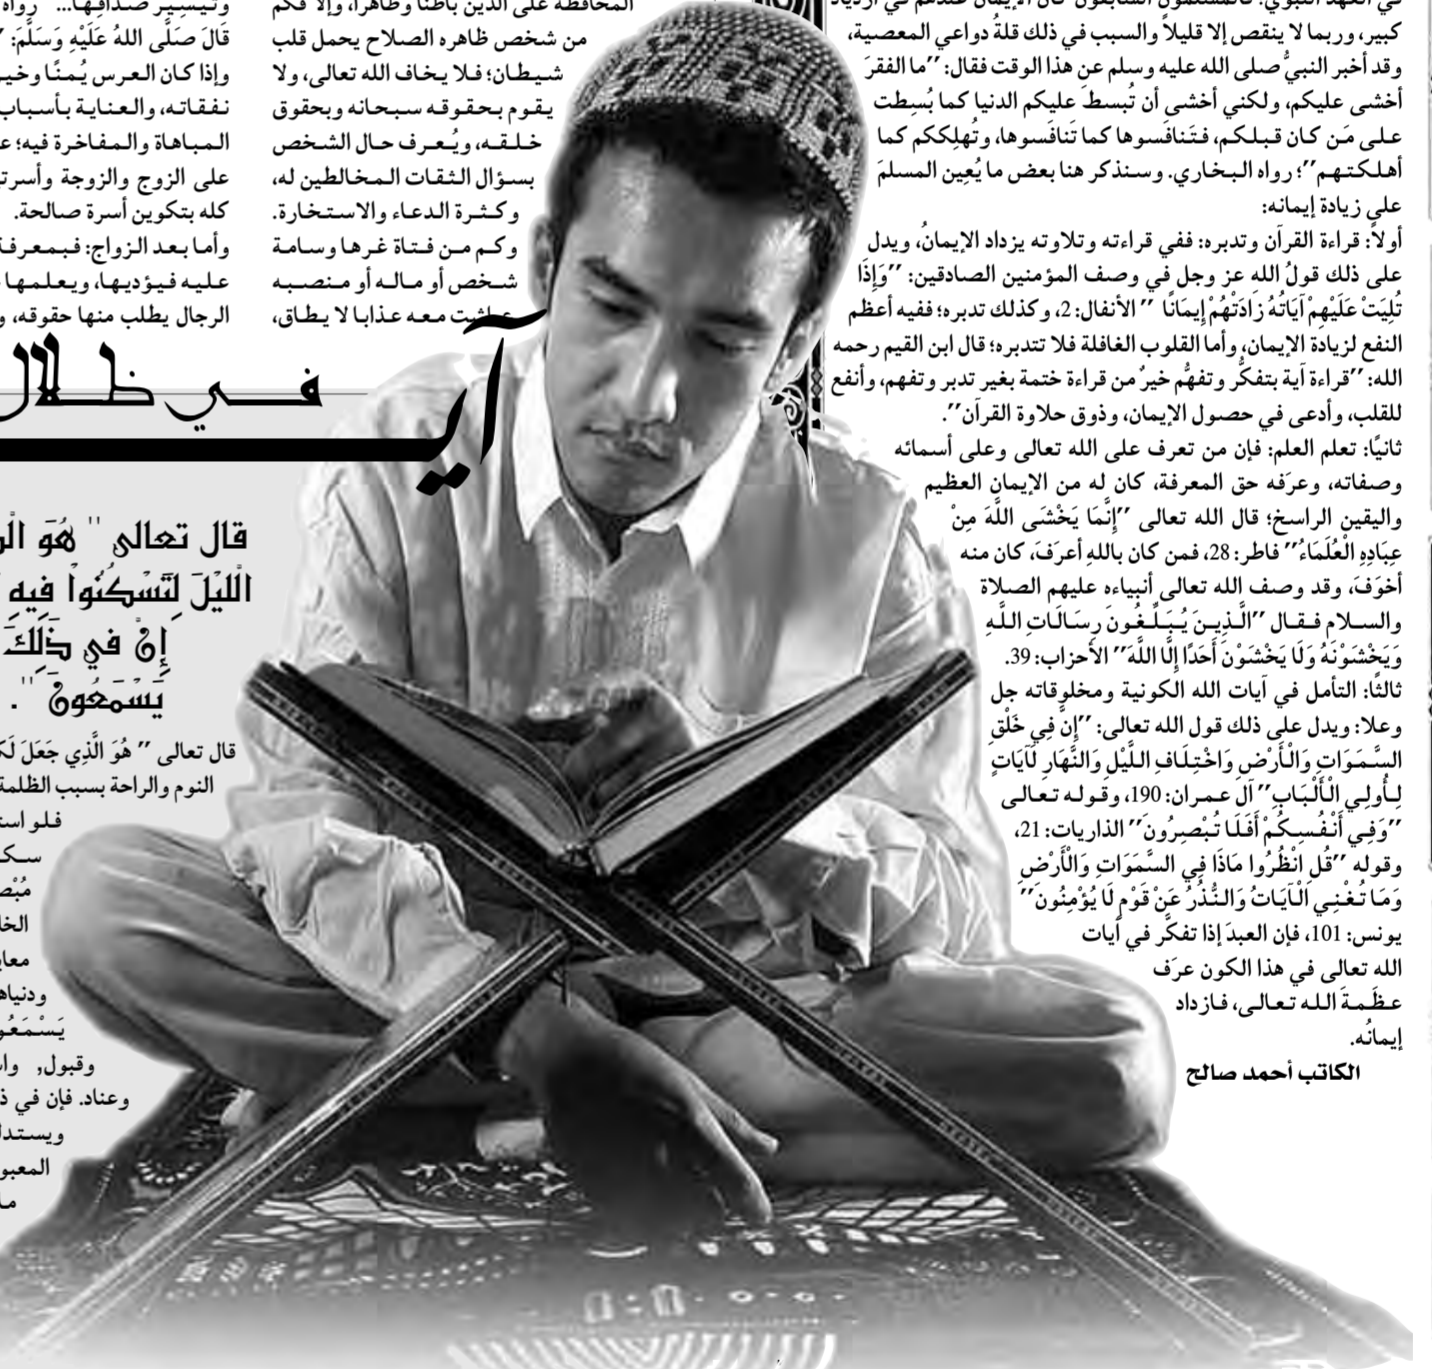 كبير، وربما لا ينقص إلا قليلاً والسبب في ذلك قلةُ دواعي المعصية،
وقد أخبر النبيُّ صلى الله عليه وسلم عن هذا الوقت فقال: ”ما الفقرَ
أخشى عليكم، ولكني أخشى أن تُبسطَ عليكم الدنيا كما بُسِطت
على مَن كان قبلكم، فتَنافَسوها كما تَنافَسوها، وتُهلِككم كما
أهلكتهم“؛ رواه البخاري. وسنذكر هنا بعض ما يُعِين المسلمَ
على زيادة إيمانه:
أولاً: قراءة القرآن وتدبره: ففي قراءته وتلاوته يزداد الإيمانُ، ويدل
على ذلك قولُ الله عز وجل في وصف المؤمنين الصادقين: ”وَإِذَا
تُلِيَتْ عَلَيْهِمْ آيَاتُهُ زَادَتْهُمْ إِيمَانًا ” الأنفال: 2، وكذلك تدبره؛ ففيه أعظم
النفع لزيادة الإيمان، وأما القلوب الغافلة فلا تتدبره؛ قال ابن القيم رحمه
الله: ”قراءة آية بتفكُّر وتفهُّم خيرٌ من قراءة ختمة بغير تدبر وتفهم، وأنفع
للقلب، وأدعى في حصول الإيمان، وذوق حلاوة القرآن”.
ثانيًا: تعلم العلم: فإن من تعرف على الله تعالى وعلى أسمائه
وصفاته، وعرَفه حق المعرفة، كان له من الإيمان العظيم
واليقين الراسخ؛ قال الله تعالى ”إِنَّمَا يَخْشَى اللَّهَ مِنْ
عِبَادِهِ الْعُلَمَاءُ” فاطر: 28، فمن كان باللهِ أعرَفَ، كان منه
أخوَفَ، وقد وصف الله تعالى أنبياءه عليهم الصلاة
والسلام فقال ”الَّذِينَ يُبَلِّغُونَ رِسَالَاتِ اللَّهِ
وَيَخْشَوْنَهُ وَلَا يَخْشَوْنَ أَحَدًا إِلَّا اللَّهَ” الأحزاب: 39.
ثالثًا: التأمل في آيات الله الكونية ومخلوقاته جل
وعلا: ويدل على ذلك قول الله تعالى: ”إِنَّ فِي خَلْقِ
السَّمَوَاتِ وَالْأَرْضِ وَاخْتِلَافِ اللَّيْلِ وَالنَّهَارِ لَآيَاتٍ
لِأُولِي الْأَلْبَابِ” آل عمران: 190، وقوله تعالى
”وَفِي أَنْفُسِكُمْ أَفَلَا تُبْصِرُونَ” الذاريات: 21،
وقوله ”قُلِ انْظُرُوا مَاذَا فِي السَّمَوَاتِ وَالْأَرْضِ
وَمَا تُغْنِي الْآيَاتُ وَالنُّذُرُ عَنْ قَوْمٍ لَا يُؤْمِنُونَ”
يونس: 101، فإن العبدَ إذا تفكَّر في آيات
الله تعالى في هذا الكون عرَف
عظَمةَ الله تعالى، فازداد
إيمانُه.
الكاتب أحمد صالح
المحافظة على الدين باطنا وظاهرا، وإلا فكم
من شخص ظاهره الصلاح يحمل قلب
شيطان؛ فلا يخاف الله تعالى، ولا
يقوم بحقوقه سبحانه وبحقوق
خلقه، ويُعرف حال الشخص
بسؤال الثقات المخالطين له،
وكثرة الدعاء والاستخارة.
وكم من فتاة غرها وسامة
شخص أو ماله أو منصبه
معه عذابا لا يطاق،
وتيسير صداقها... رواه
قَالَ صَلَّى اللهُ عَلَيْهِ وَسَلَّمَ: ”
وإذا كان العرس يُمنًا وخير
نفقاته، والعناية بأسباب
المباهاة والمفاخرة فيه؛
على الزوج والزوجة
كله بتكوين أسرة صالحة.
وأما بعد الزواج: فبمعرفة
عليه فيؤديها، ويعلمها
الرجال يطلب منها حقوقه،
في ظلال
آيـ
قال تعالى " هُوَ
الْلَيْلَ لِتَسْكُنُواْ فِيهِ
إِنَّ في ذَلِكَ
يَسْمَعُونَ ".
قال تعالى ” هُوَ الَّذِي جَعَلَ
النوم والراحة بسبب الظلمة
فلو
معا
يَسْمَعُو
وقبول,
وعناد. فإن في